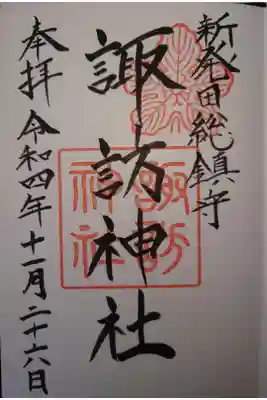 新発田総鎮守
諏訪神社
奉拝 令和四年十一月二十六日
諏訪神社